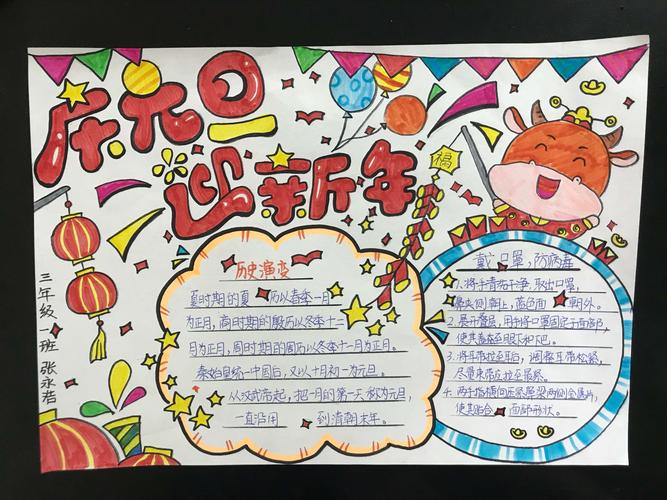 庆元旦
迎新年
福
三年级一班 张永浩
历史演变
夏时期的夏历以春季一月
为正月,商时期的殷历以冬季十二
月为正月,周时期的周历以冬季十一月为正月。
秦始皇统一中国后,又以十月初一为元旦。
从汉武帝起,把一月的第一天称为元旦,
一直沿用到清朝末年。
戴口罩,防病毒
1、将手清洁干净,取出口罩,
鼻夹侧朝上,蓝色面朝外。
2、展开叠层,用手将口罩固定于面部,
使其覆盖至眼下和下巴。
3、将耳带拉至耳后,调整耳带松紧,
尽量束带应拉至最紧。
4、两手指横向压紧鼻梁两侧金属片,
使其贴合面部形状。